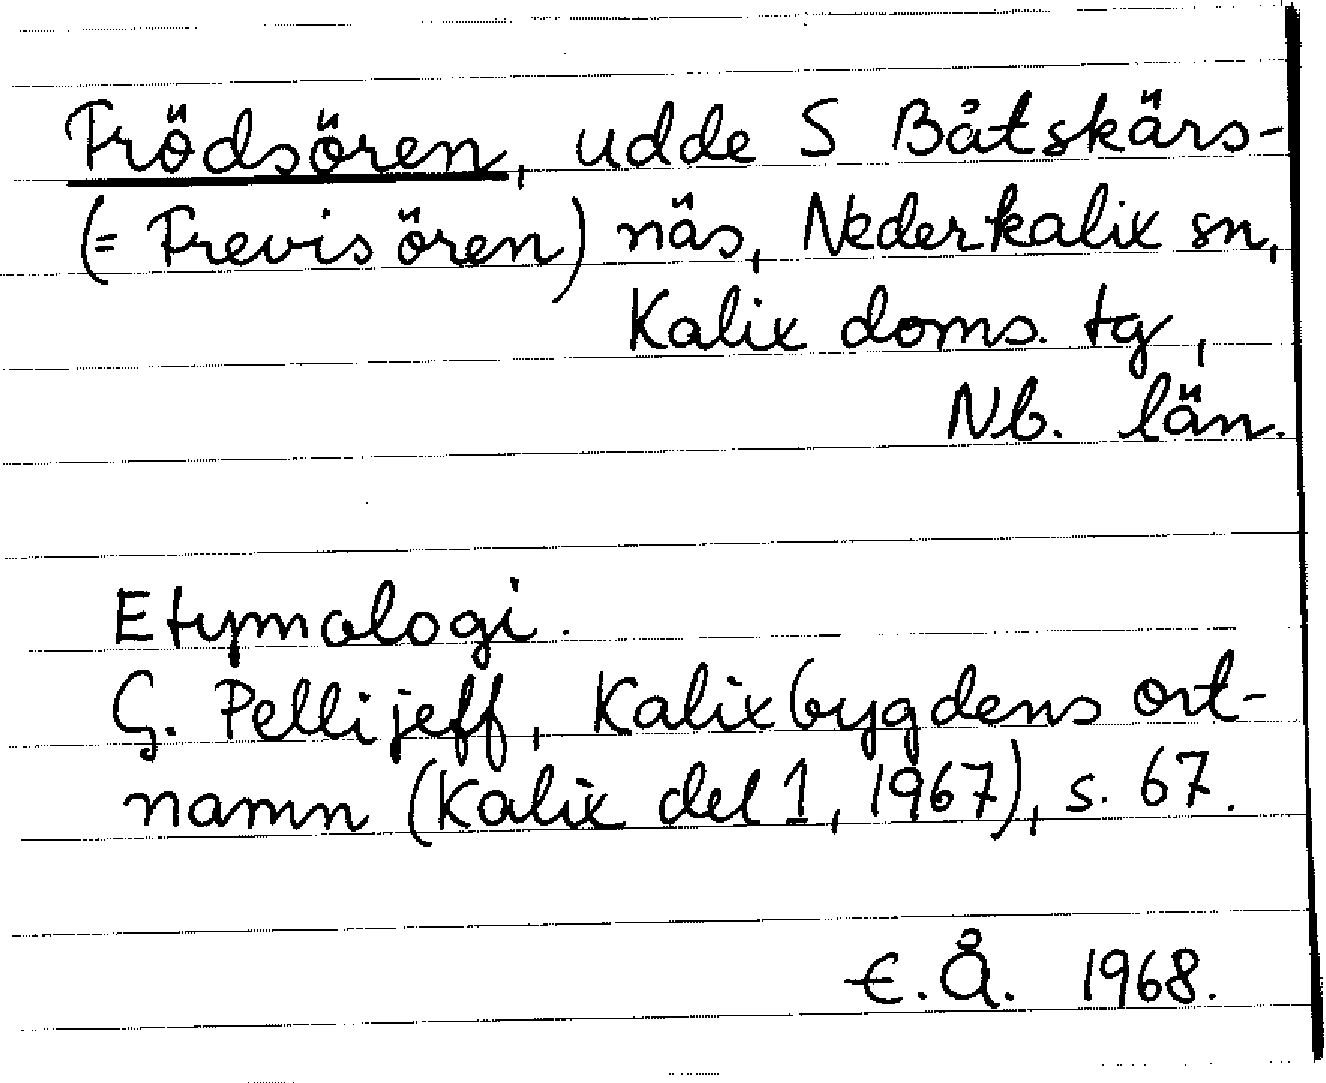 Frödsören, udde S Båtskärs-
(= Frevisören) näs, Nederkalix sn,
Kalix doms. tg,
Nb. län.
Etymologi.
G. Pellijeff, Kalixbygdens ort-
namn (Kalix del 1, 1967), s. 67.
E.Å. 1968.